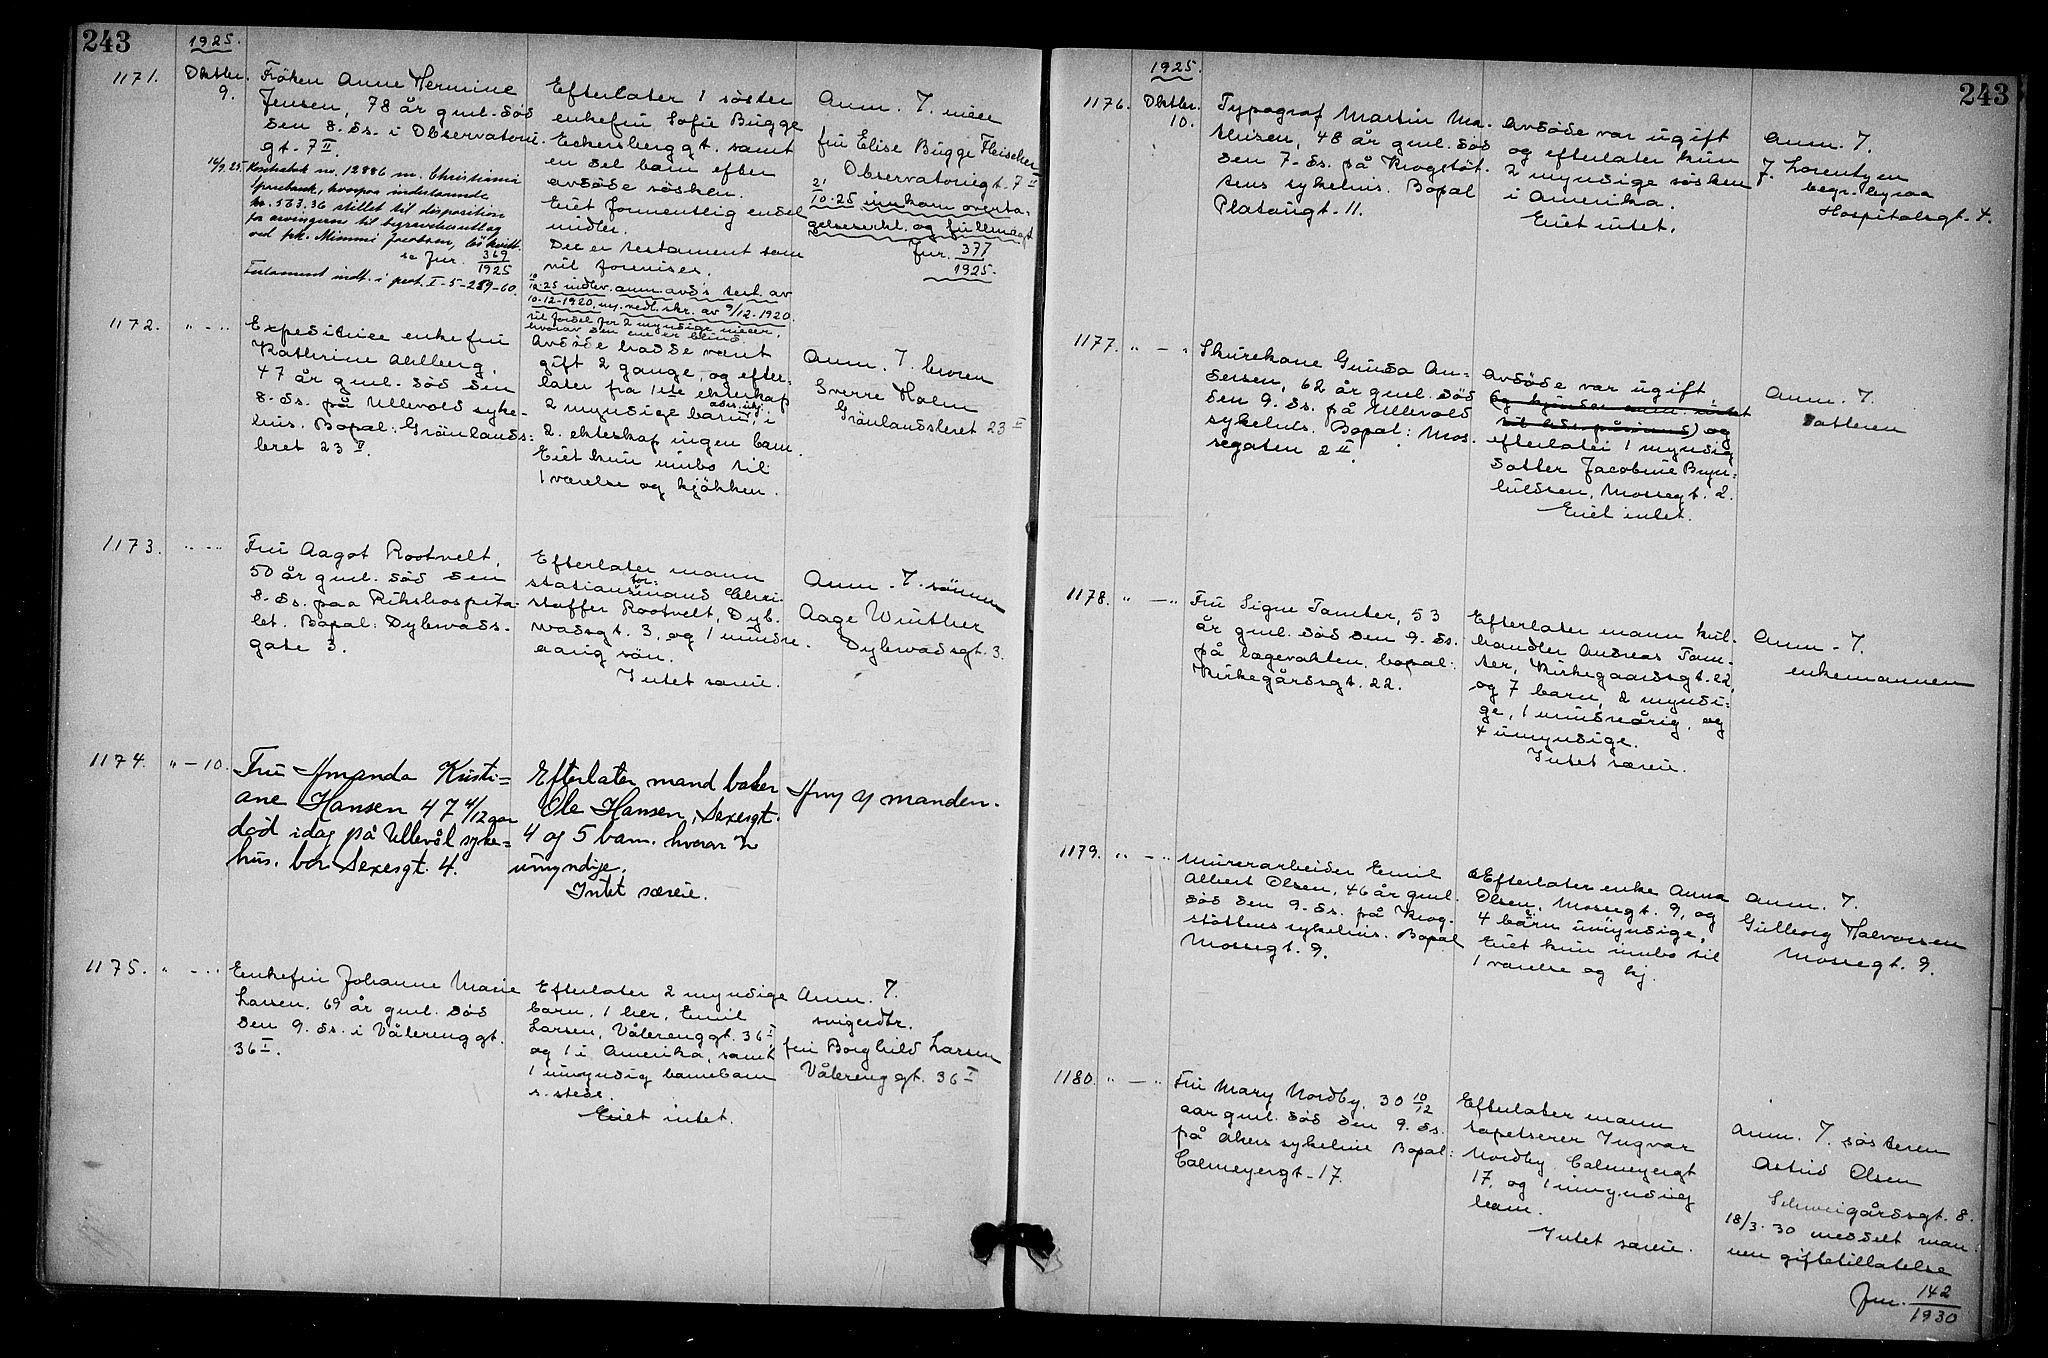 243
1925.
1171.
Oktbr.
9.
Fröken Anne Hermine
Jensen, 78 år gml. död
den 8. ds. i Observatori
gt. 7 II.
16/9.25. Kontrabok no. 12886 m. Christiania
Sparebank, hvorpaa indestaaende
kr. 533.36 stillet til disposition
for arvingerne til begravelsesutlæg
ved frk. Mimmi Jacobsen,
se Jur. 369
1925
Testament indt. i prot. I-5-259-60.
Efterlater 1 söster
enkefru Sofie Bugge
Eckersberggt. samt
en del barn efter
avdöde södsken.
Eiet formentlig endel
midler.
Der er testament som
vil forevises.
10/12.25 indlev. anm. avd's test. av
10-12-1920, m. nedl. skr. av 9/12-1920.
til fordel for 2 myndige niecer,
hvorav den ene er blind.
Anm. 7. niece
fru Elise Bugge Fleischer
Observatoriegt. 7 II
21/10.25 innkom overta-
gelseserkl. og fullmagt
Jur. 377
1925.
1172.
" - "
Expeditrice enkefru
Kathrine Ahlberg,
47 år gml. död den
8. ds. på Ullevold syke-
hus. Bopal: Grönlands-
leret 23 II.
Avdöde hadde vært
gift 2 gange, og efter-
later fra 1ste ekteskap
2 myndige barn, i
2. ekteskap ingen barn.
Eiet kun innbo til
1 værelse og kjökken.
Anm. 7. broren
Sverre Holm
Grönlandsleret 23 II
1173.
" - "
Fru Aagot Rootvelt,
50 år gml. död den
8. ds. paa Rikshospita-
let. Bopal: Dybwads-
gate 3.
Efterlater mann
stationsmand Chri-
stoffer Rootvelt, Dyb-
wadsgt. 3, og 1 mindre-
aarig sön.
Intet særeie.
Anm. 7. sönnen
Aage Winther
Dybwadsgt. 3.
1174.
" - 10.
Fru Amanda Kristi=
ane Hansen 47 4/12 aar
död idag på Ullevål syke=
hus. bor Sexesgt. 4.
Efterlater mand baker
Ole Hansen, Sexesgt.
4 og 5 barn. hvorav 2
umyndige.
Intet særeie.
Amy 7 manden.
1175.
" - "
Enkefru Johanne Marie
Larsen, 69 år gml. död
den 9. ds. i Vålerenggt.
36 I.
Efterlater 2 myndige
barn, 1 her, Emil
Larsen, Vålerenggt. 36 I,
og 1 i Amerika, samt
1 umyndig barnebarn
s. stede.
Eiet intet.
Anm. 7.
svigerdtr.
fru Borghild Larsen
Vålerenggt. 36 I
243
1925.
1176.
Oktbr.
10.
Typograf Martin Ma-
thisen, 48 år gml. död
den 7. ds. på Krogstöt-
tens sykehus. Bopal
Platougt. 11.
Avdöde var ugift
og efterlater kun
2 myndige södsken
i Amerika.
Eiet intet.
Anm. 7.
J. Lorentzen
begr. byraa
Hospitalsgt. 4.
1177.
" - "
Skurekone Gunda An-
dersen, 62 år gml. död
den 9. ds. på Ullevold
sykehus. Bopal: Mos-
segaten 2 II.
Avdöde var ugift,
og
efterlater 1 myndig
datter Jacobine Bryn-
hildsen, Mossegt. 2.
Eiet intet.
Anm. 7.
datteren
1178.
" - "
Fru Signe Tamber, 53
år gml. död den 9. ds.
på lægevakten. bopal:
Kirkegårdsgt. 22.
Efterlater mann kul-
handler Andreas Tam-
ber, Kirkegaardsgt. 22,
og 7 barn, 2 myndi-
ge, 1 mindreårig, og
4 umyndige.
Intet særeie.
Anm. 7.
enkemannen
1179.
" - "
Murerarbeider Emil
Albert Olsen, 46 år gml.
död den 9. ds. på Krog-
stöttens sykehus. Bopal
Mossegt. 9.
Efterlater enke Anna
Olsen, Mossegt. 9, og
4 barn umyndige,
Eiet kun innbo til
1 værelse og kj.
Anm. 7.
Gulborg Halvorsen
Mossegt. 9.
1180.
" - "
Fru Mary Nordby, 30 10/12
aar gml. död den 9. ds.
på Akers sykehus Bopal:
Calmeyergt. 17.
Efterlater mann
tapetserer Ingvar
Nordby, Calmeyergt
17, og 1 umyndig
barn.
Intet særeie.
Anm. 7. sösteren
Astrid Olsen
Schweigårdsgt. 8.
18/3.30 meddelt man-
nen giftetillatelse
Jur. 142
1930